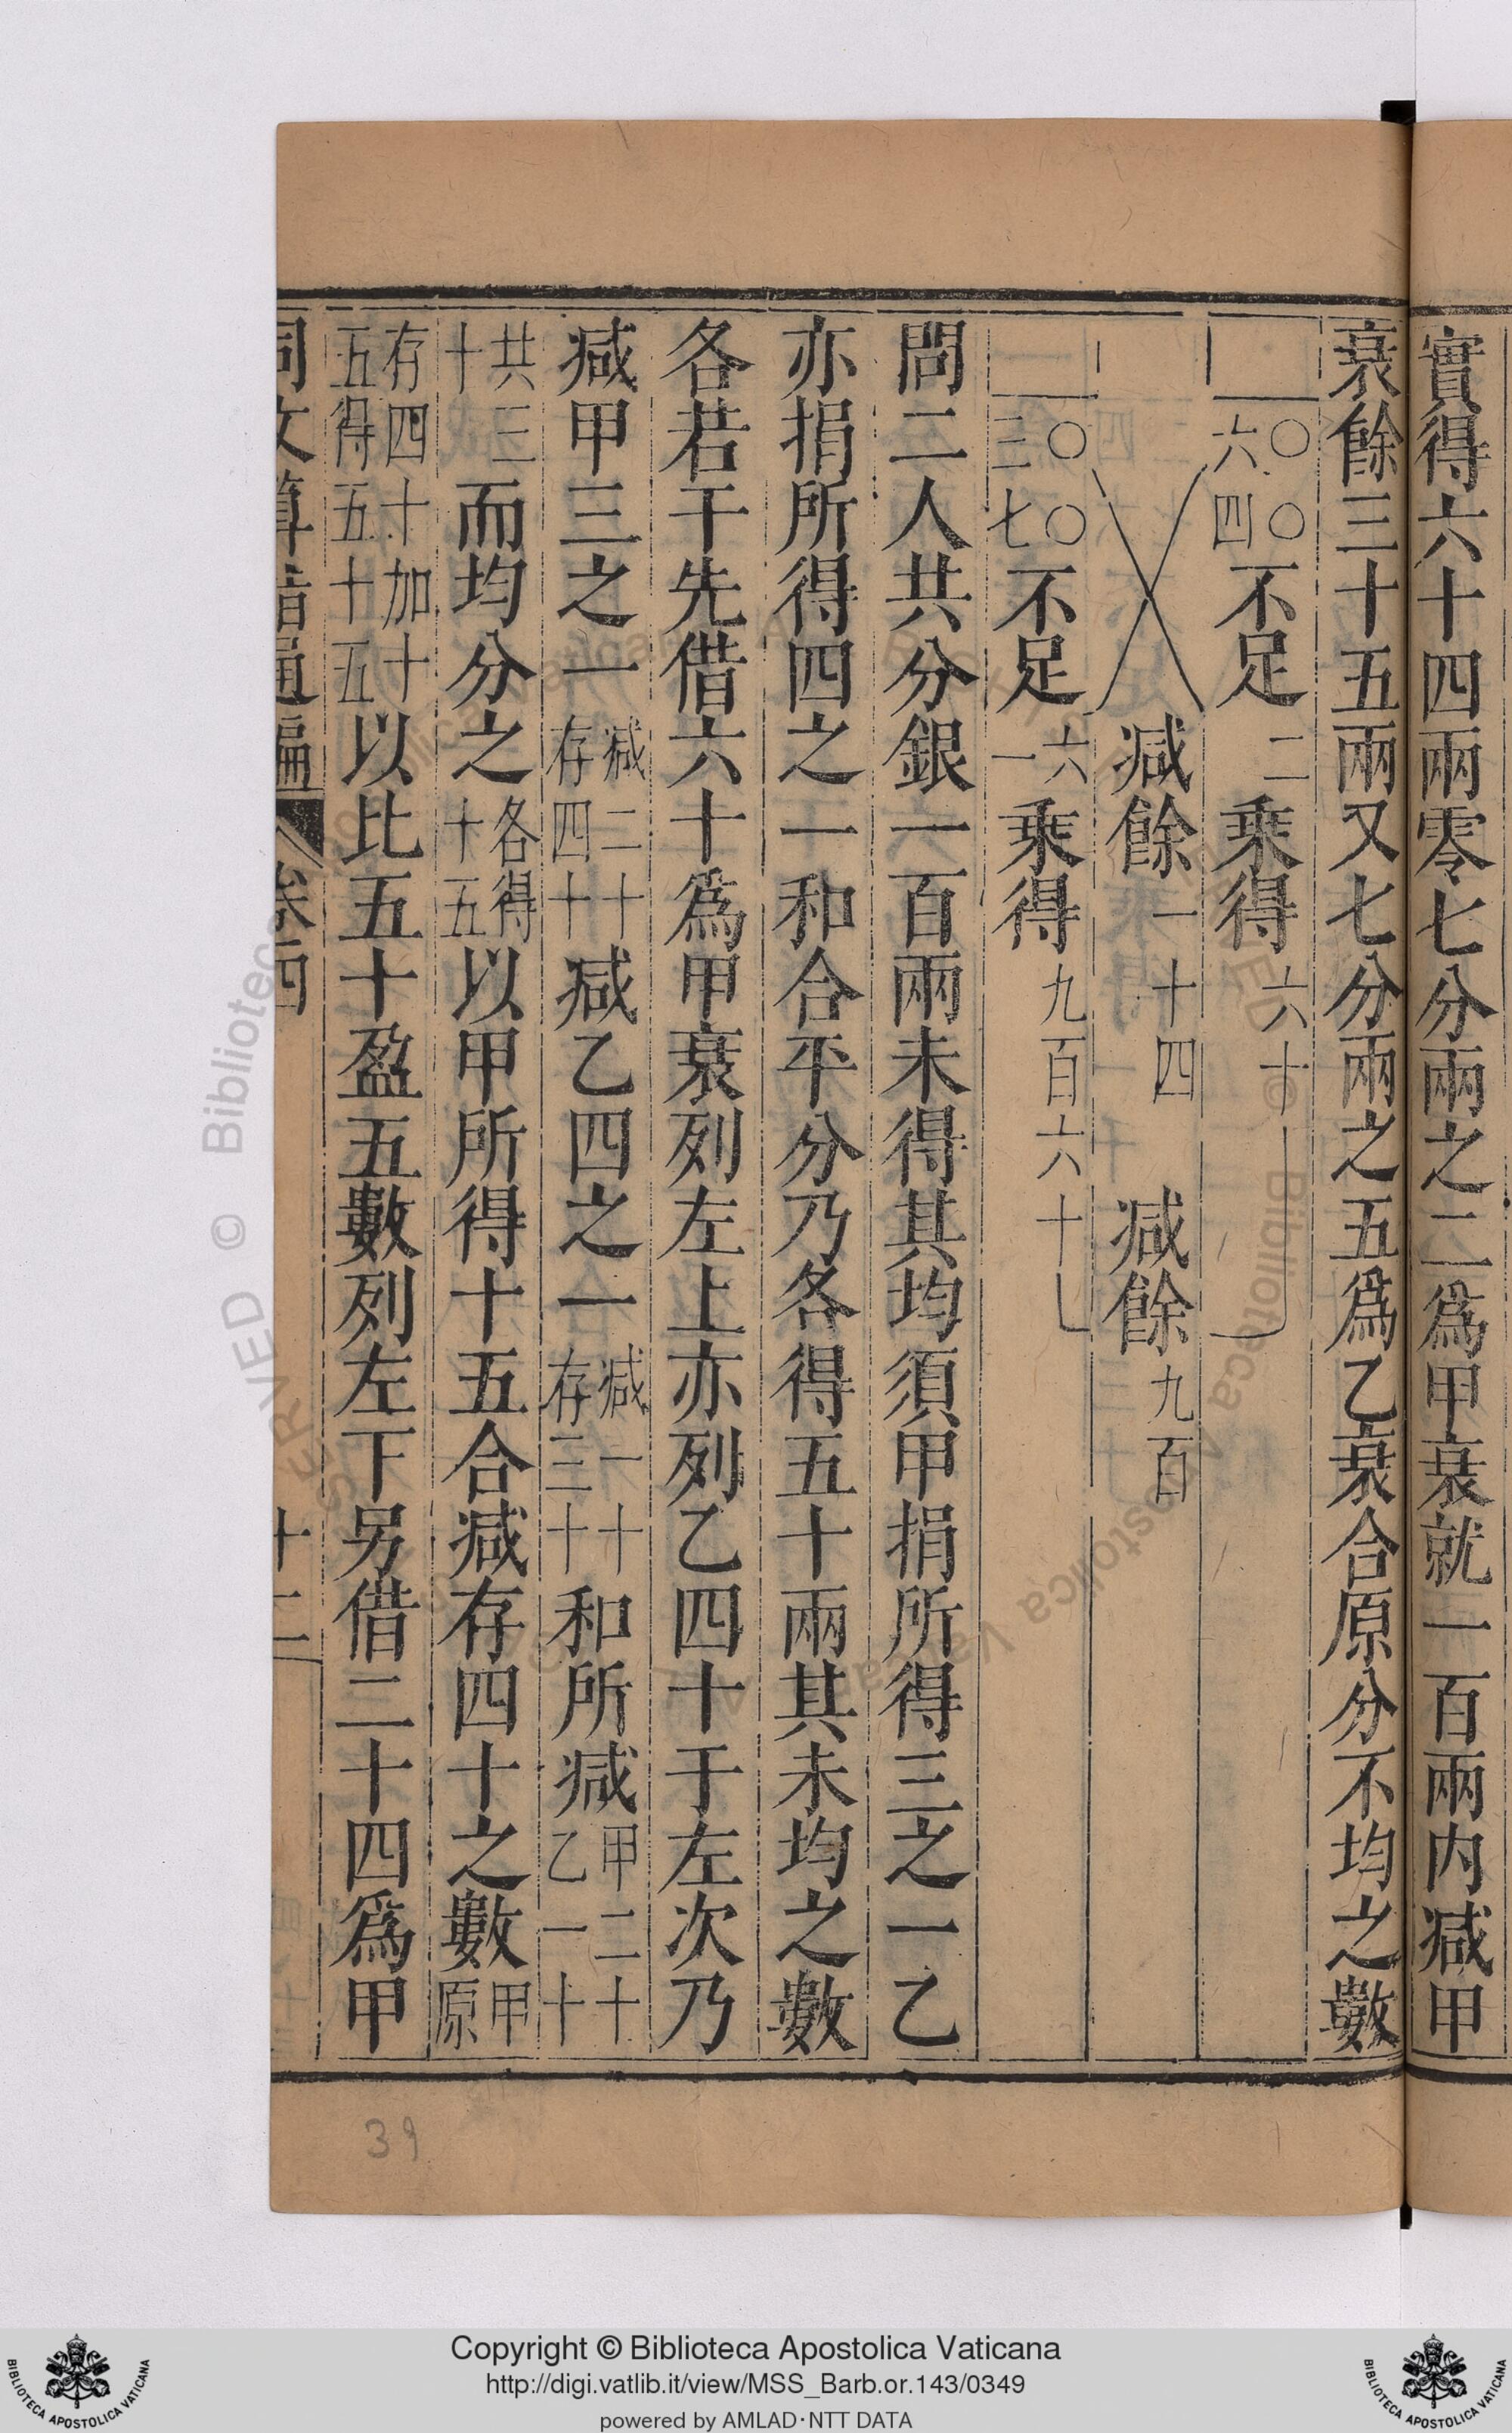 實得六十四兩零七分兩之二爲甲衰就一百兩内减甲
衰餘三十五兩又七分兩之五爲乙衰合原分不均之數
六〇〇
四〇不足 二 乘得 六十
减餘 一十四 减餘 九百
三〇〇
七〇不足 六一 乘得 九百六十
問二人共分銀一百兩未得其均須甲捐所得三之一乙
亦捐所得四之一和合平分乃各得五十兩其未均之數
各若干先借六十爲甲衰列左上亦列乙四十于左次乃
减甲三之一减二十存四十减乙四之一减一十存三十和所减甲二十乙一十
共三十而均分之各得十五以甲所得十五合减存四十之數甲原
存四十加十五得五十五以比五十盈五數列左下另借二十四爲甲
同文算指通編 卷四 十二
39
Copyright © Biblioteca Apostolica Vaticana
http://digi.vatlib.it/view/MSS_Barb.or.143/0349
powered by AMLAD·NTT DATA
BIBLIOTECA APOSTOLICA VATICANA
BIBLIOTECA APOSTOLICA VATICANA